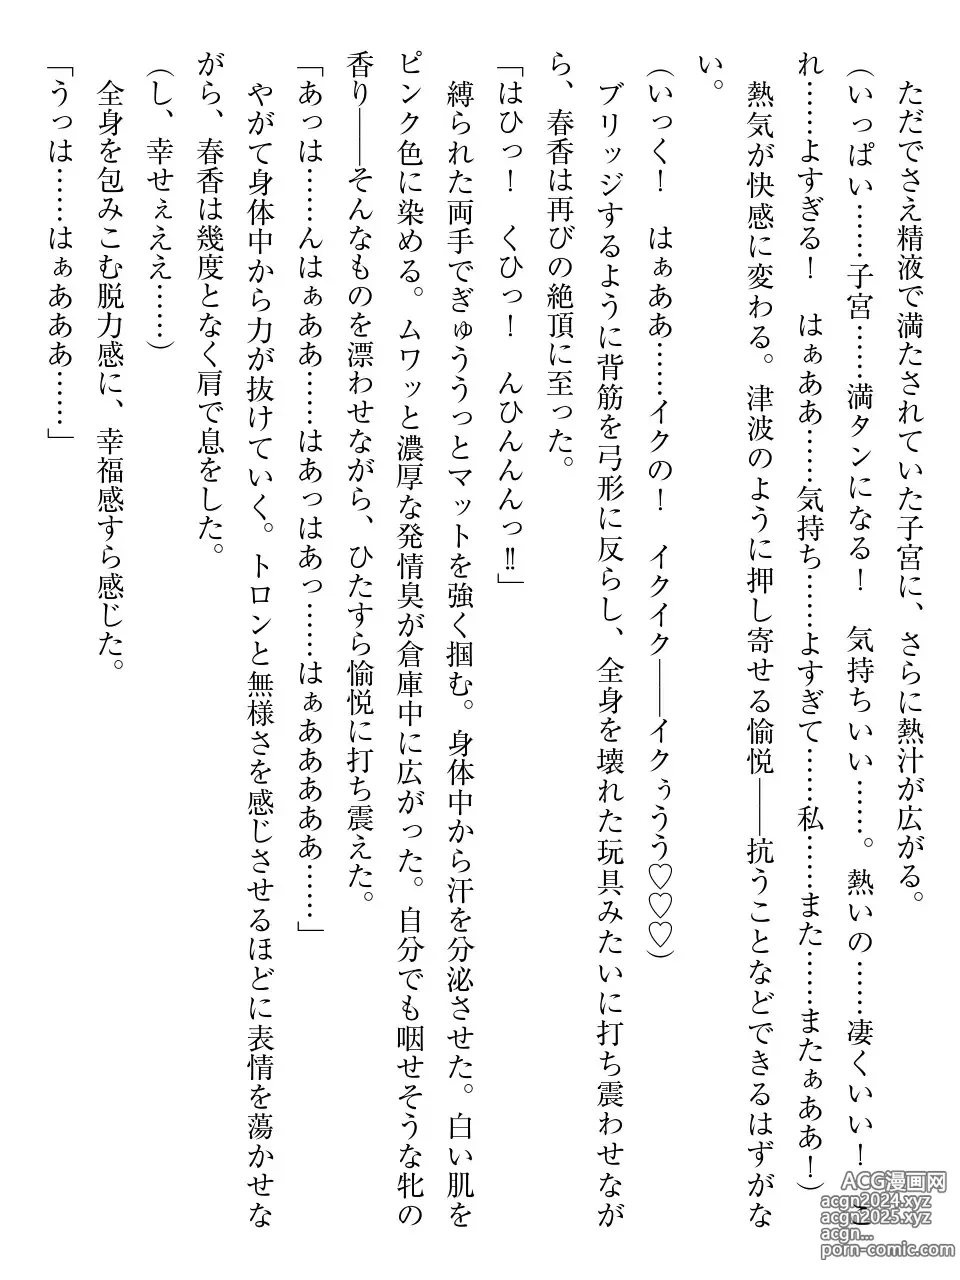 ただでさえ精液で満たされていた子宮に、さらに熱汁が広がる。
（いっぱい……子宮……満タンになる！　気持ちいい……。熱いの……凄くいい！　こ
れ……よすぎる！　はぁああ……気持ち……よすぎて……私……また……またぁああ！）
熱気が快感に変わる。津波のように押し寄せる愉悦――抗うことなどできるはずがな
い。
（いっく！　はぁああ……イクの！　イクイク――イクぅうう♡♡♡）
ブリッジするように背筋を弓形に反らし、全身を壊れた玩具みたいに打ち震わせなが
ら、春香は再びの絶頂に至った。
「はひっ！　くひっ！　んひんんんっ‼」
縛られた両手でぎゅううっとマットを強く掴む。身体中から汗を分泌させた。白い肌を
ピンク色に染める。ムワッと濃厚な発情臭が倉庫中に広がった。自分でも咽せそうな牝の
香り――そんなものを漂わせながら、ひたすら愉悦に打ち震えた。
「あっは……んはぁああ……はあっはあっ……はぁあああああ……」
やがて身体中から力が抜けていく。トロンと無様さを感じさせるほどに表情を蕩かせな
がら、春香は幾度となく肩で息をした。
（し、幸せぇええ……）
全身を包みこむ脱力感に、幸福感すら感じた。
「うっは……はぁあああ……」
ACG漫画网
acgn2024.xyz
acgn2025.xyz
acgn...
porn-comic.com